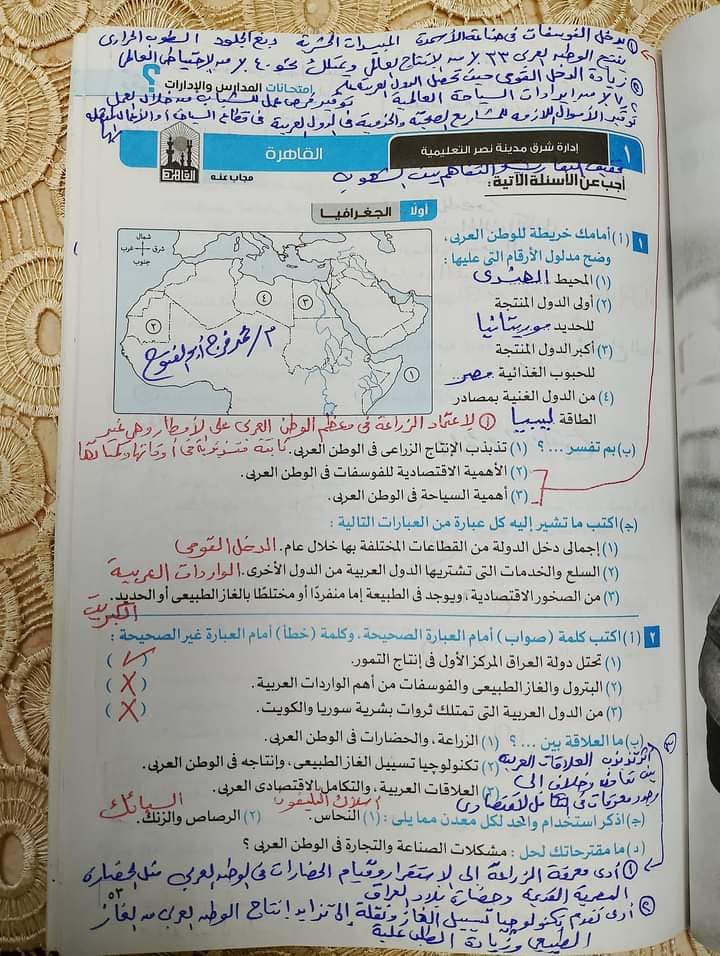 ① يدخل الفوسفات فى صناعة الأسمدة المبيدات الحشرية دبغ الجلود الطوب الحرارى
ينتج الوطن العربى ٣٣٪ من الإنتاج العالمى ويمتلك نحو ٤٠٪ من الاحتياطى العالمى
② زيادة الدخل القومى حيث تحصل الدول العربية على
٧٪ من ايرادات السياحة العالمية توفير فرص عمل للشباب من خلال العمل
توفير الأموال اللازمة للمشاريع الصحية والخدمية فى الدول العربية فى قطاع السياحة أو الأنشطة
امتحانات المدارس والإدارات
؟
١
إدارة شرق مدينة نصر التعليمية
القاهرة
القاهرة
مجاب عنه
تحقيق التقارب والتفاهم بين الشعوب
أجب عن الأسئلة الآتية:
أولًا الجغرافيا
١ (أ) أمامك خريطة للوطن العربى،
وضح مدلول الأرقام التى عليها :
(١) المحيط الهندى
(٢) أولى الدول المنتجة
للحديد موريتانيا
(٣) أكبر الدول المنتجة
للحبوب الغذائية مصر
(٤) من الدول الغنية بمصادر
الطاقة ليبيا
شمال
شرق غرب
جنوب
٤
٣
٢
١
م/ محمد فرج أبو الفتوح
① لاعتماد الزراعة فى معظم الوطن العربى على الأمطار وهى غير
ثابتة فى أوقاتها وكمياتها
(ب) بم تفسر ... ؟ (١) تذبذب الإنتاج الزراعى فى الوطن العربى.
(٢) الأهمية الاقتصادية للفوسفات فى الوطن العربى.
(٣) أهمية السياحة فى الوطن العربى.
(ج) اكتب ما تشير إليه كل عبارة من العبارات التالية :
(١) إجمالى دخل الدولة من القطاعات المختلفة بها خلال عام. الدخل القومى
(٢) السلع والخدمات التى تشتريها الدول العربية من الدول الأخرى. الواردات العربية
(٣) من الصخور الاقتصادية، ويوجد فى الطبيعة إما منفردًا أو مختلطًا بالغاز الطبيعى أو الحديد.
الكبريت
٢ (أ) اكتب كلمة (صواب) أمام العبارة الصحيحة، وكلمة (خطأ) أمام العبارة غير الصحيحة :
(١) تحتل دولة العراق المركز الأول فى إنتاج التمور. (✓)
(٢) البترول والغاز الطبيعى والفوسفات من أهم الواردات العربية. (X)
(٣) من الدول العربية التى تمتلك ثروات بشرية سوريا والكويت. (X)
(ب) ما العلاقة بين ... ؟ (١) الزراعة، والحضارات فى الوطن العربى.
(٢) تكنولوجيا تسييل الغاز الطبيعى، وإنتاجه فى الوطن العربى.
(٣) العلاقات العربية، والتكامل الاقتصادى العربى.
③
العلاقات العربية
بين تعاون وخلاف إلى
وجود معوقات فى التكامل الاقتصادى
(ج) اذكر استخدام واحد لكل معدن مما يلى : (١) النحاس. أسلاك التليفون (٢) الرصاص والزنك. السبائك
(د) ما مقترحاتك لحل : مشكلات الصناعة والتجارة فى الوطن العربى ؟
① أدى معرفة الزراعة إلى الاستقرار وقيام الحضارات فى الوطن العربى مثل الحضارة
المصرية القديمة وحضارة بلاد العراق
٥٣
② أدى تقدم تكنولوجيا تسييل الغاز ونقله إلى تزايد إنتاج الوطن العربى من الغاز
الطبيعى وزيادة الطلب عليه